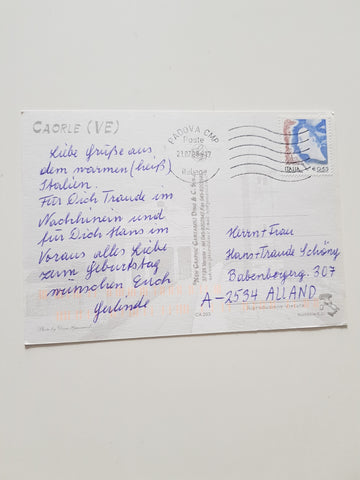 CAORLE (VE)
Liebe Grüße aus
dem warmen (heiß)
Italien.
Für Dich Traude im
Nachhinein und
für Dich Hans im
Voraus alles Liebe
zum Geburtstag
wünschen Euch
Gerlinde
PADOVA CMP
Poste
Italiane
ITALIA € 0,45
Herrn + Frau
Hans + Traude Schöny
Babenbergerg. 307
A-2534 ALLAND
CA 203
Riproduzione vietata